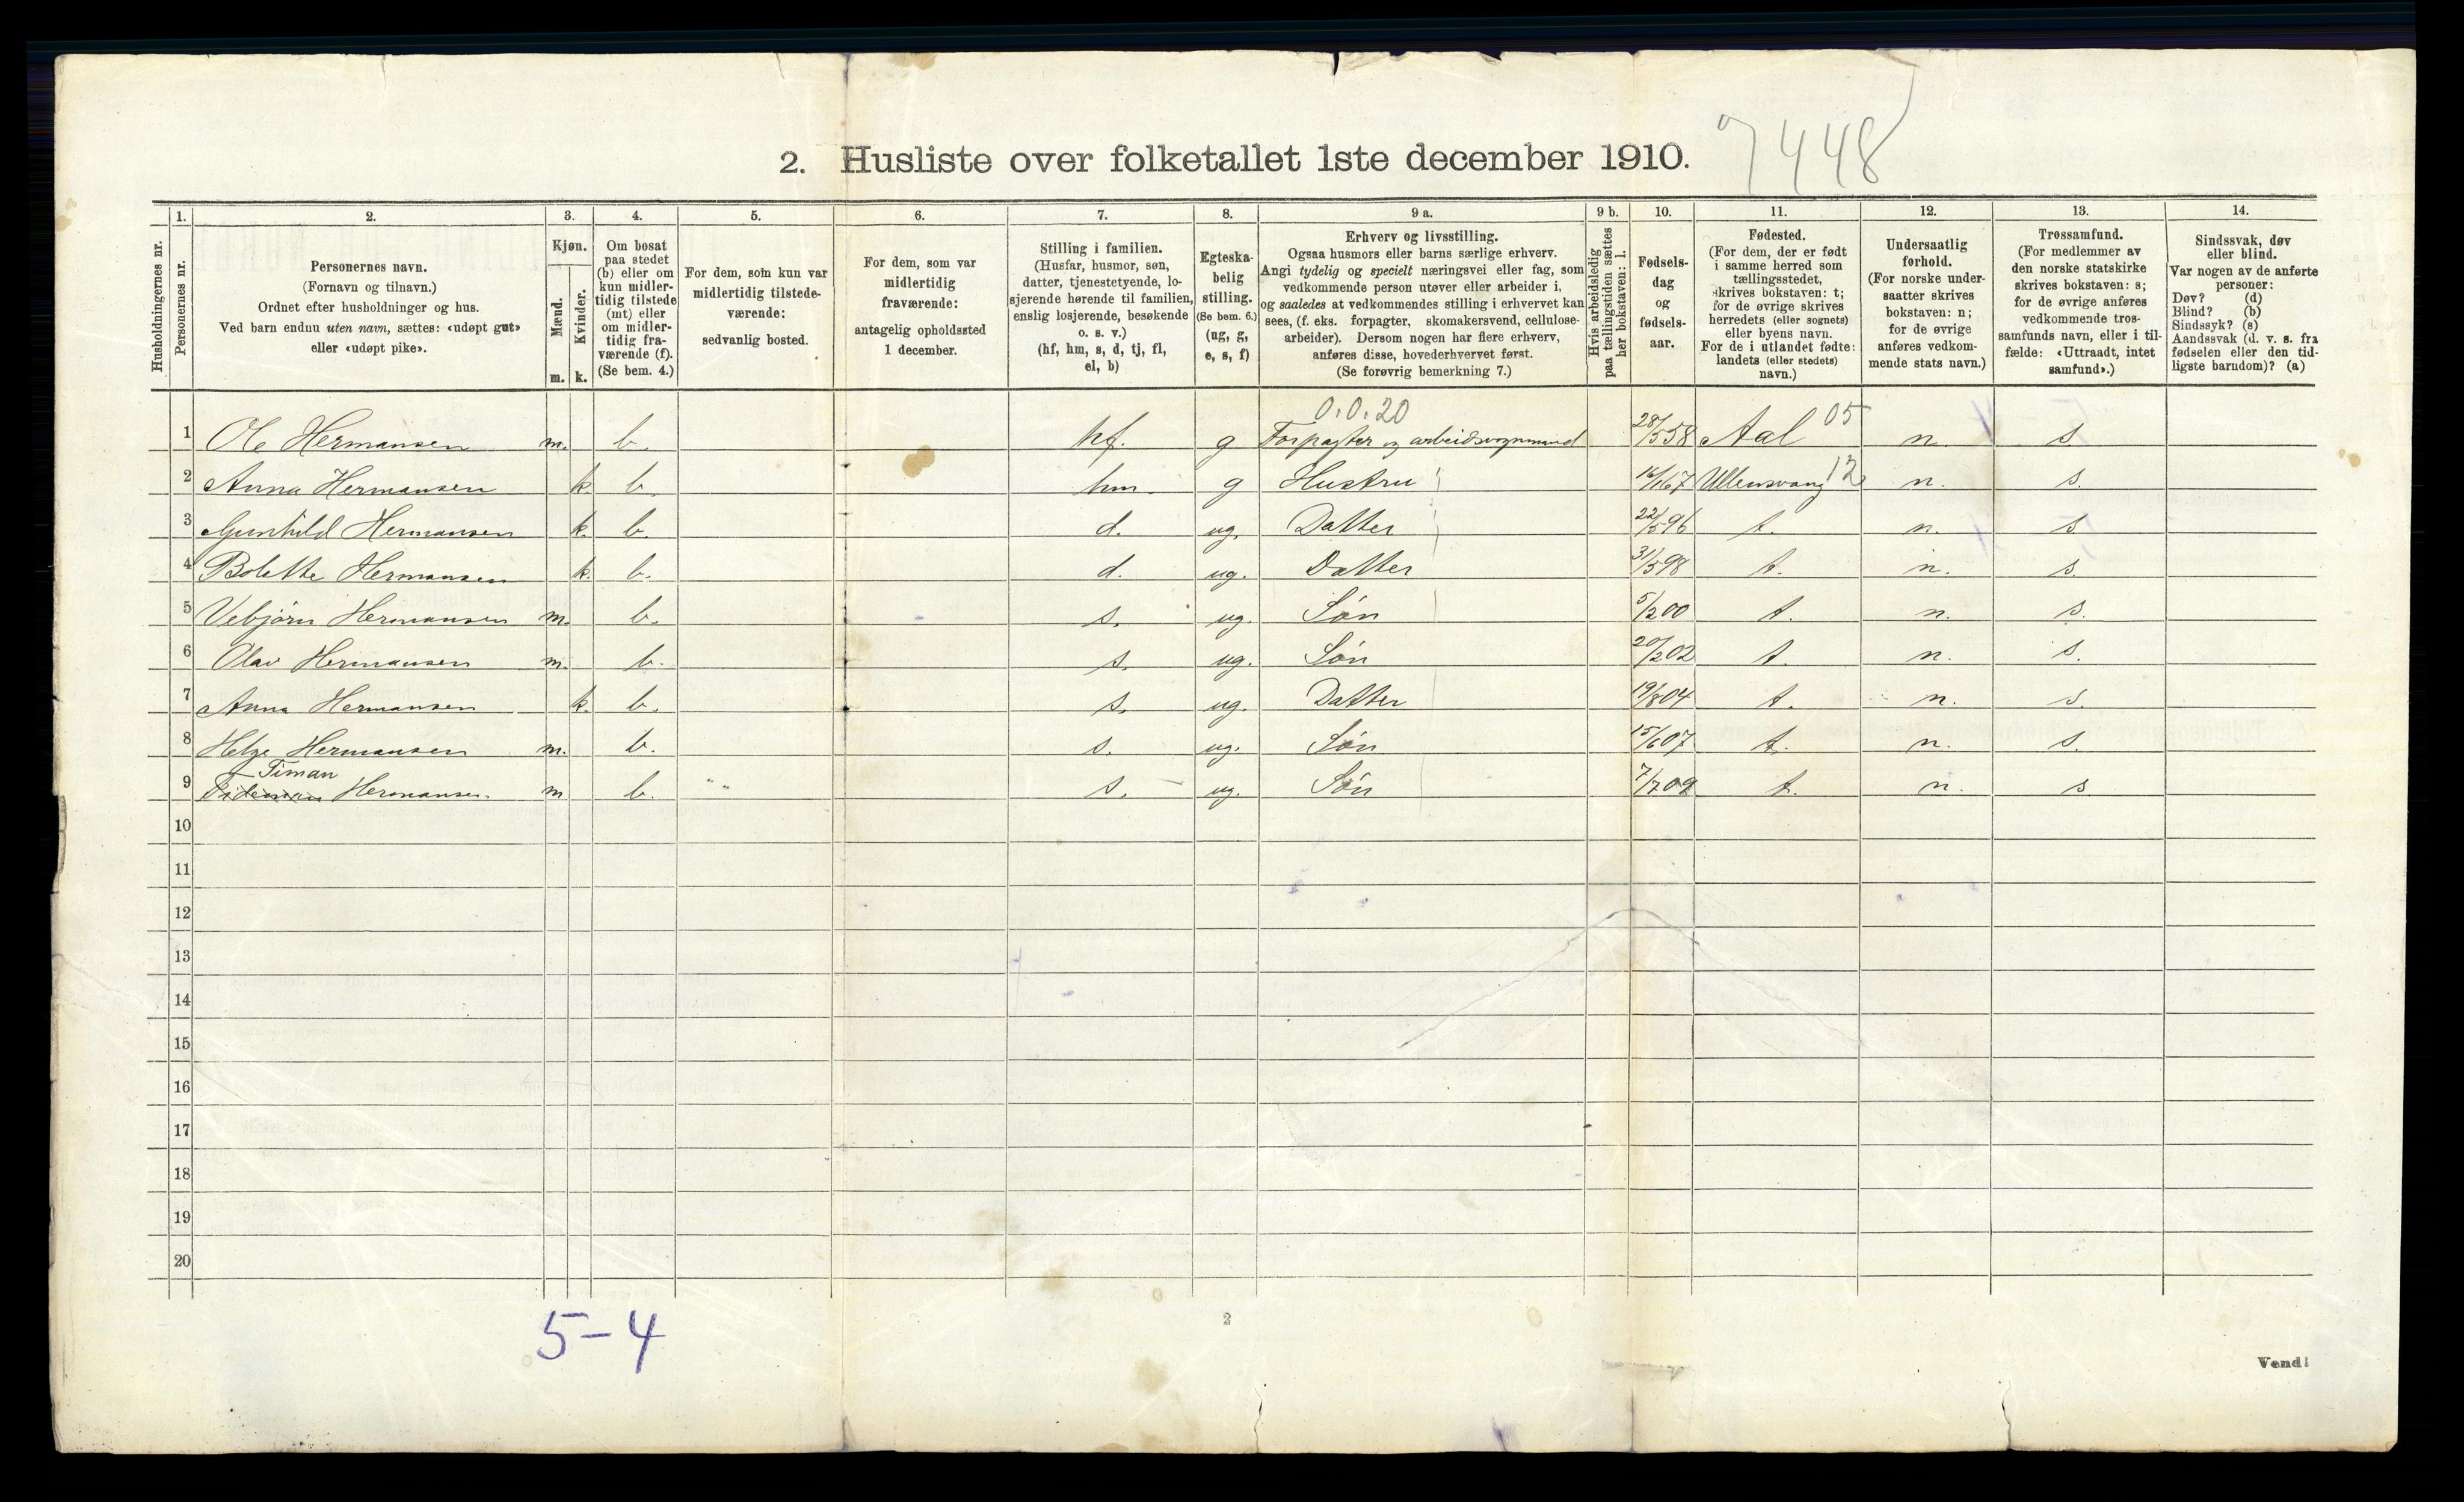 7448
2. Husliste over folketallet 1ste december 1910.
Husholdningernes nr.
1.
Personernes nr.
2.
Personernes navn.
(Fornavn og tilnavn.)
Ordnet efter husholdninger og hus.
Ved barn endnu uten navn, sættes: «udøpt gut»
eller «udøpt pike».
3.
Kjøn.
Mænd.
Kvinder.
m. k.
4.
Om bosat
paa stedet
(b) eller om
kun midler-
tidig tilstede
(mt) eller
om midler-
tidig fra-
værende (f).
(Se bem. 4.)
5.
For dem, som kun var
midlertidig tilstede-
værende:
sedvanlig bosted.
6.
For dem, som var
midlertidig
fraværende:
antagelig opholdssted
1 december.
7.
Stilling i familien.
(Husfar, husmor, søn,
datter, tjenestetyende, lo-
sjerende hørende til familien,
enslig losjerende, besøkende
o. s. v.)
(hf, hm, s, d, tj, fl,
el, b)
8.
Egteska-
belig
stilling.
(Se bem. 6.)
(ug, g,
e, s, f)
9 a.
Erhverv og livsstilling.
Ogsaa husmors eller barns særlige erhverv.
Angi tydelig og specielt næringsvei eller fag, som
vedkommende person utøver eller arbeider i,
og saaledes at vedkommendes stilling i erhvervet kan
sees, (f. eks. forpagter, skomakersvend, cellulose-
arbeider). Dersom nogen har flere erhverv,
anføres disse, hovederhvervet først.
(Se forøvrig bemerkning 7.)
9 b.
Hvis arbeidsledig
paa tællingstiden sættes
her bokstaven: l.
10.
Fødsels-
dag
og
fødsels-
aar.
11.
Fødested.
(For dem, der er født
i samme herred som
tællingsstedet,
skrives bokstaven: t;
for de øvrige skrives
herredets (eller sognets)
eller byens navn.
For de i utlandet fødte:
landets (eller stedets)
navn.)
12.
Undersaatlig
forhold.
(For norske under-
saatter skrives
bokstaven: n;
for de øvrige
anføres vedkom-
mende stats navn.)
13.
Trossamfund.
(For medlemmer av
den norske statskirke
skrives bokstaven: s;
for de øvrige anføres
vedkommende tros-
samfunds navn, eller i til-
fælde: «Uttraadt, intet
samfund».)
14.
Sindssvak, døv
eller blind.
Var nogen av de anførte
personer:
Døv? (d)
Blind? (b)
Sindssyk? (s)
Aandssvak (d. v. s. fra
fødselen eller den tid-
ligste barndom)? (a)
0.0.20
1 Ole Hermansen m. b. hf. g Forpagter og arbeidsvognmand 28/5 58 Aal 05 n. s
2 Anna Hermansen k. b. hm. g Hustru 16/1 67 Ullensvang 12 n. s.
3 Gunhild Hermansen k. b. d. ug. Datter 22/5 96 t. n. s.
4 Bolette Hermansen k. b. d. ug. Datter 31/3 98 t. n. s.
5 Vebjørn Hermansen m. b. s. ug. Søn 5/2 00 t. n. s.
6 Olav Hermansen m. b. s. ug. Søn 20/2 02 t. n. s.
7 Anna Hermansen k. b. s. ug. Datter 19/8 04 t. n. s.
8 Helge Hermansen m. b. s. ug. Søn 15/6 07 t. n. s.
Timan
9 Tideman Hermansen m b. s. ug. Søn 7/7 09 t. n. s
10
11
12
13
14
15
16
17
18
19
20
5-4
2
Vend!